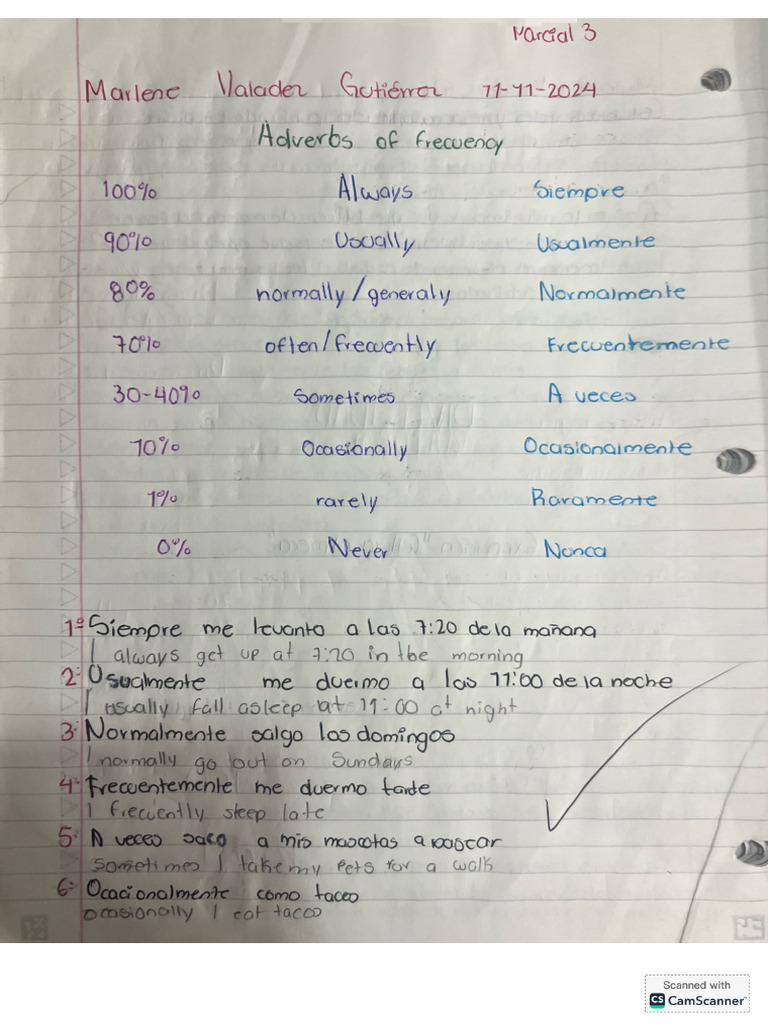 Parcial 3
Marlene Valadez Gutiérrez 11-11-2024
Adverbs of frecuency
100% Always Siempre
90% Usually Usualmente
80% normally/generaly Normalmente
70% often/frecuently Frecuentemente
30-40% Sometimes A veces
10% Ocasionally Ocasionalmente
1% rarely Raramente
0% Never Nunca
1º Siempre me levanto a las 7:20 de la mañana
I always get up at 7:20 in the morning
2: Usualmente me duermo a las 11:00 de la noche
I usually fall asleep at 11:00 at night
3: Normalmente salgo los domingos
I normally go out on Sundays
4: Frecuentemente me duermo tarde
I frecuently sleep late
5: A veces saco a mis mascotas a pasear
sometimes I take my pets for a walk
6: Ocacionalmente como tacos
ocasionally I eat tacos
Scanned with
CS CamScanner